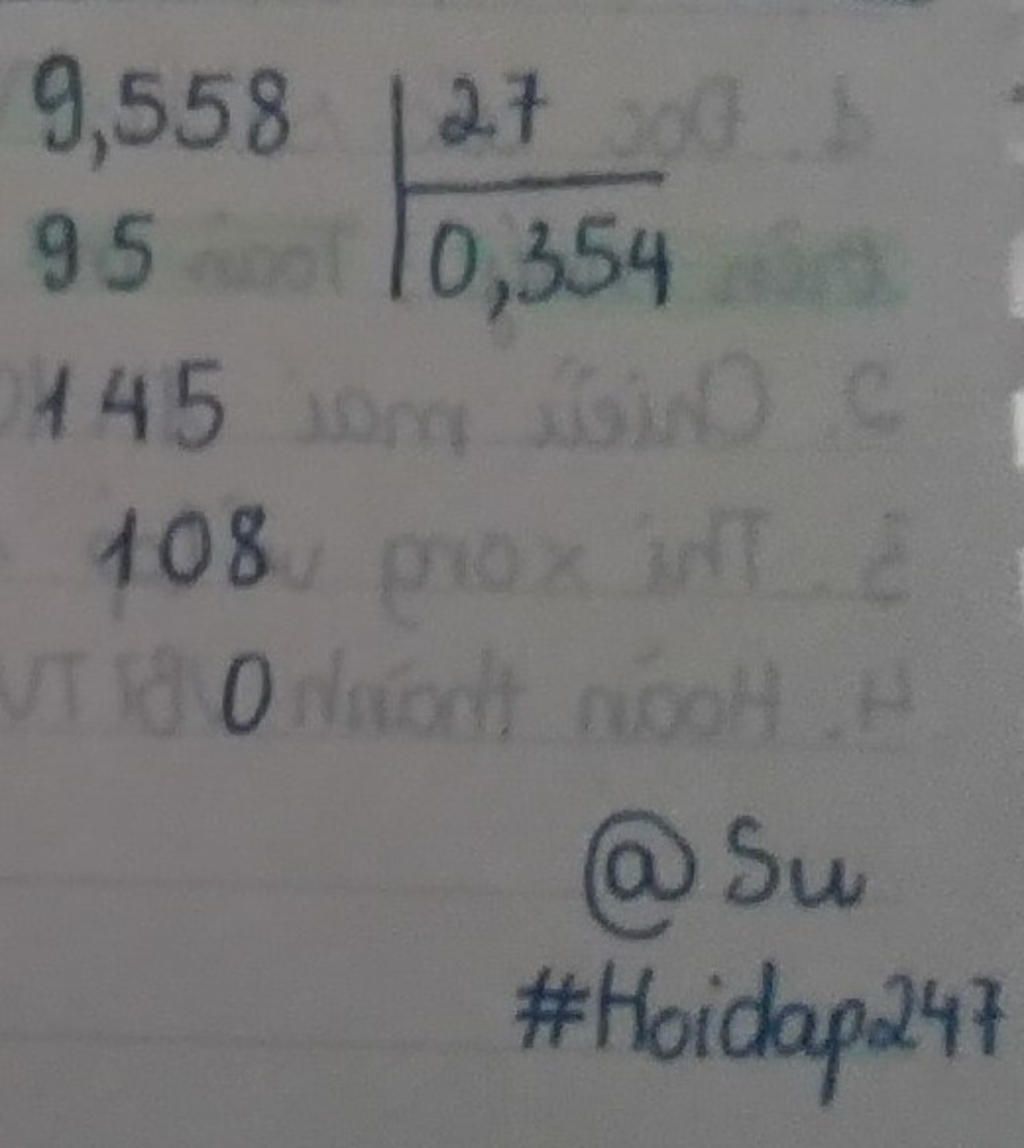 9,558 27
95 0,354
145
108
0
@Su
#Hoidap247